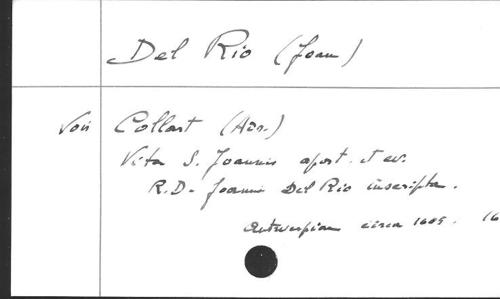 Del Rio (Joan)
Voir Collart (Adr.)
Vita S. Joannis apost. et ev.
R.D. Joanni Del Rio inscripta.
Antverpiae circa 1605. 16